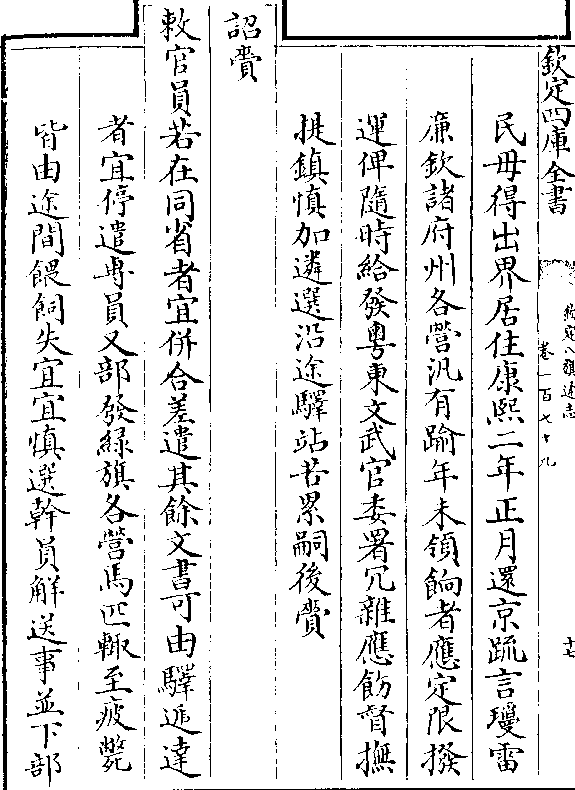 欽定四庫全書
欽定八旗通志
卷一百七十九
十七
民毋得出界居住康熙二年正月還京疏言瓊雷
廉欽諸府州各營汛有踰年未領餉者應定限撥
運俾隨時給發粵東文武官委署冗雜應飭督撫
提鎮慎加遴選沿途驛站苦累嗣後賫
詔賫
敕官員若在同省者宜併合差遣其餘文書可由驛遞達
者宜停遣專員又部發綠旗各營馬匹輙至疲斃
皆由途間餵飼失宜宜慎選幹員解送事並下部